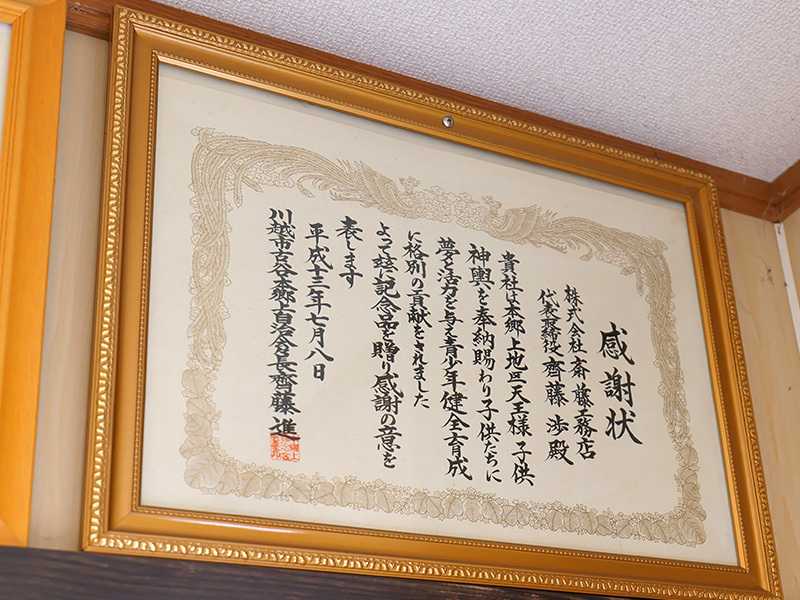 感謝状
株式会社斎藤工務店
代表取締役齊藤渉殿
貴社は本郷上地区天王様子供
神輿を奉納賜わり子供たちに
夢と活力を与え青少年健全育成
に格別の貢献をされました
よって玆に記念品を贈り感謝の意を
表します
平成十三年七月八日
川越市古谷本郷上自治会長齊藤進